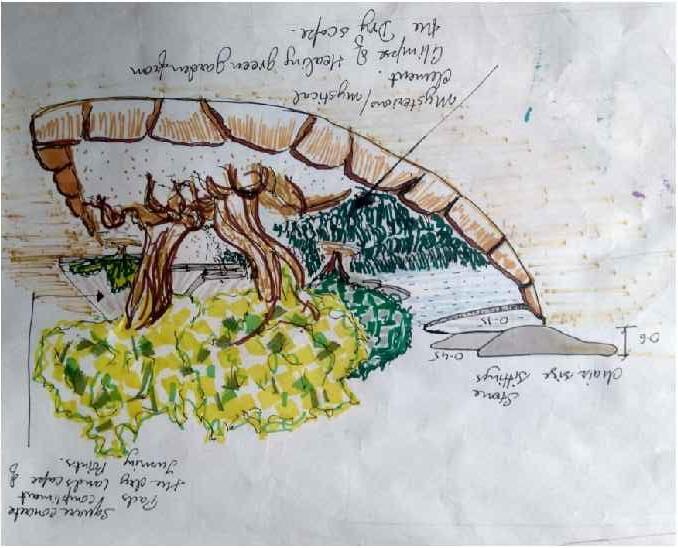 Square concrete
Pads compliment
the dry landscape &
Turning Points.
Stone
Chair size Sittings
0.6
0.45
0.15
Mysterious/mystical
element.
Glimpse of Healing green garden from
the Dry scape.